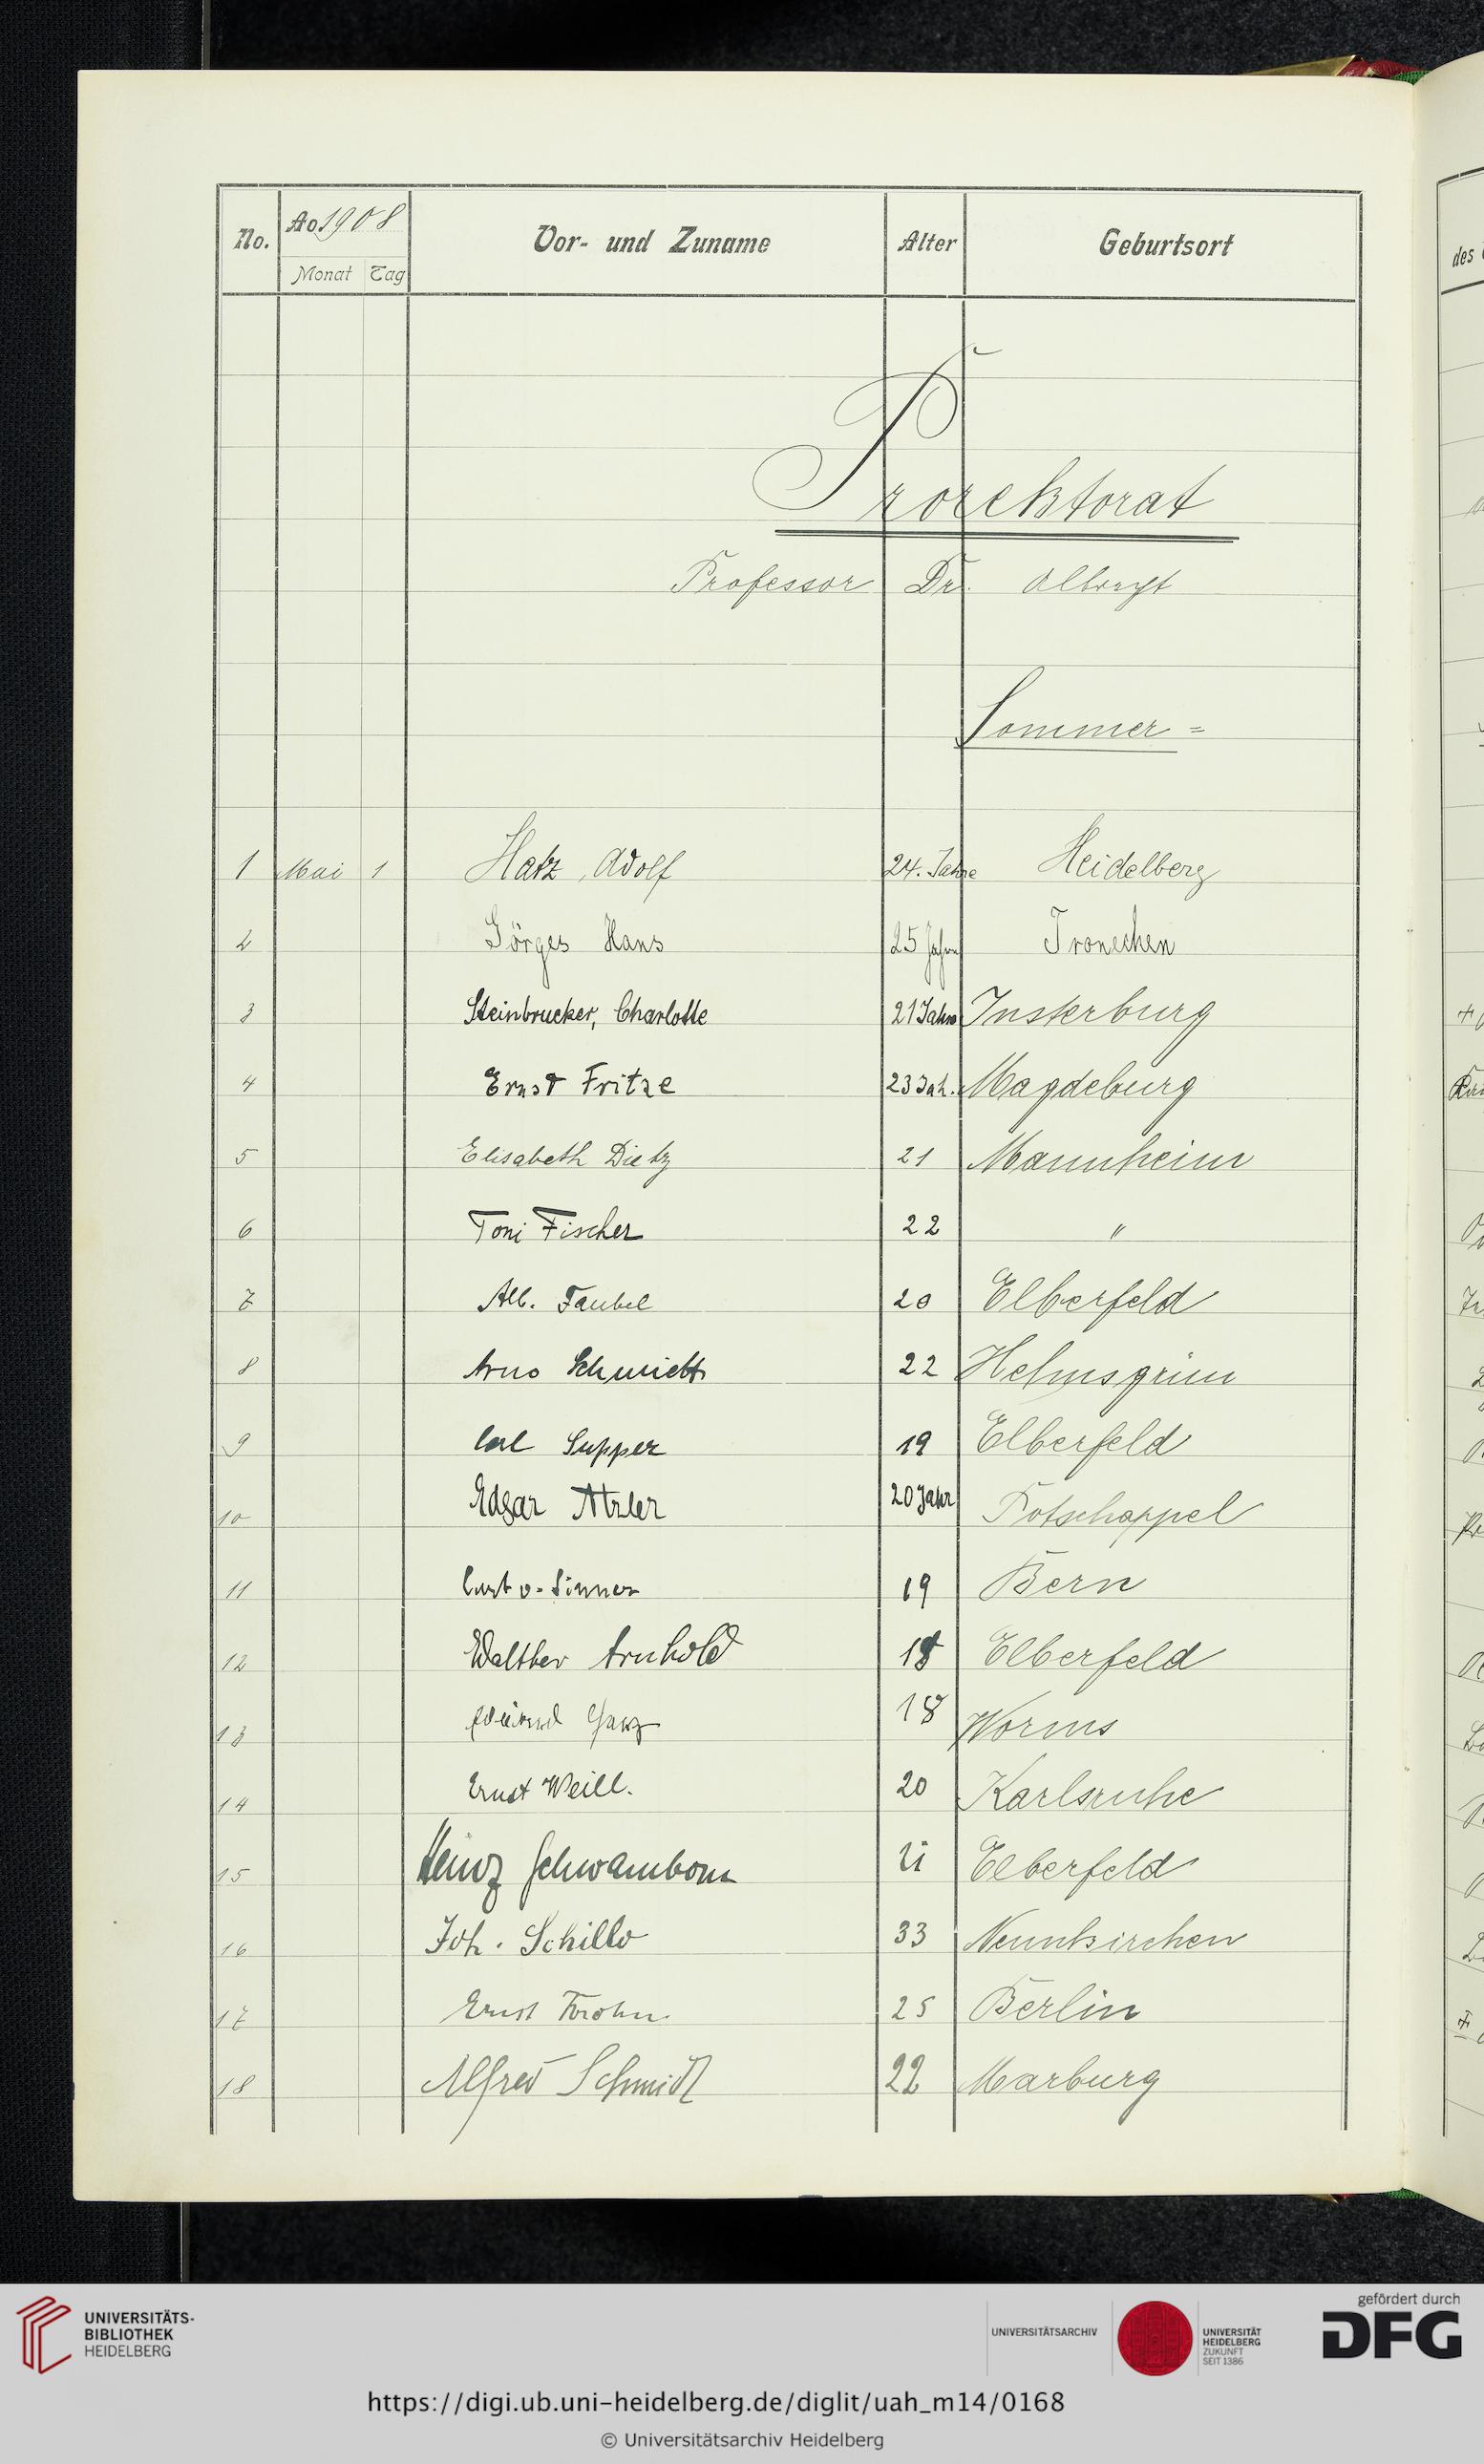 No. Ao 1908 Vor- und Zuname Alter Geburtsort
Monat Tag
Prorektorat
Professor Dr. Albrecht
Sommer=
1 Mai 1 Hatz, Adolf 24. Jahre Heidelberg
2 Görges Hans 25 Jahre Tronecken
3 Steinbrucker, Charlotte 21 Jahre Insterburg
4 Ernst Fritze 23 Jah. Magdeburg
5 Elisabeth Dietz 21 Mannheim
6 Toni Fischer 22 "
7 Alb. Faubel 20 Elberfeld
8 Arno Schmidt 22 Helmsgrün
9 Carl Supper 19 Elberfeld
10 Edgar Atzler 20 Jahr Potschappel
11 Curt v. Sinner 19 Bern
12 Walther Arnhold 18 Elberfeld
13 18 Worms
14 Ernst Weill. 20 Karlsruhe
15 Heinz Schwamborn 21 Elberfeld
16 Joh. Schillo 33 Neunkirchen
17 Ernst 25 Berlin
18 Alfred Schmidt 22 Marburg
des
UNIVERSITÄTS-
BIBLIOTHEK
HEIDELBERG
UNIVERSITÄTSARCHIV
UNIVERSITÄT
HEIDELBERG
ZUKUNFT
SEIT 1386
gefördert durch
DFG
https://digi.ub.uni-heidelberg.de/diglit/uah_m14/0168
© Universitätsarchiv Heidelberg